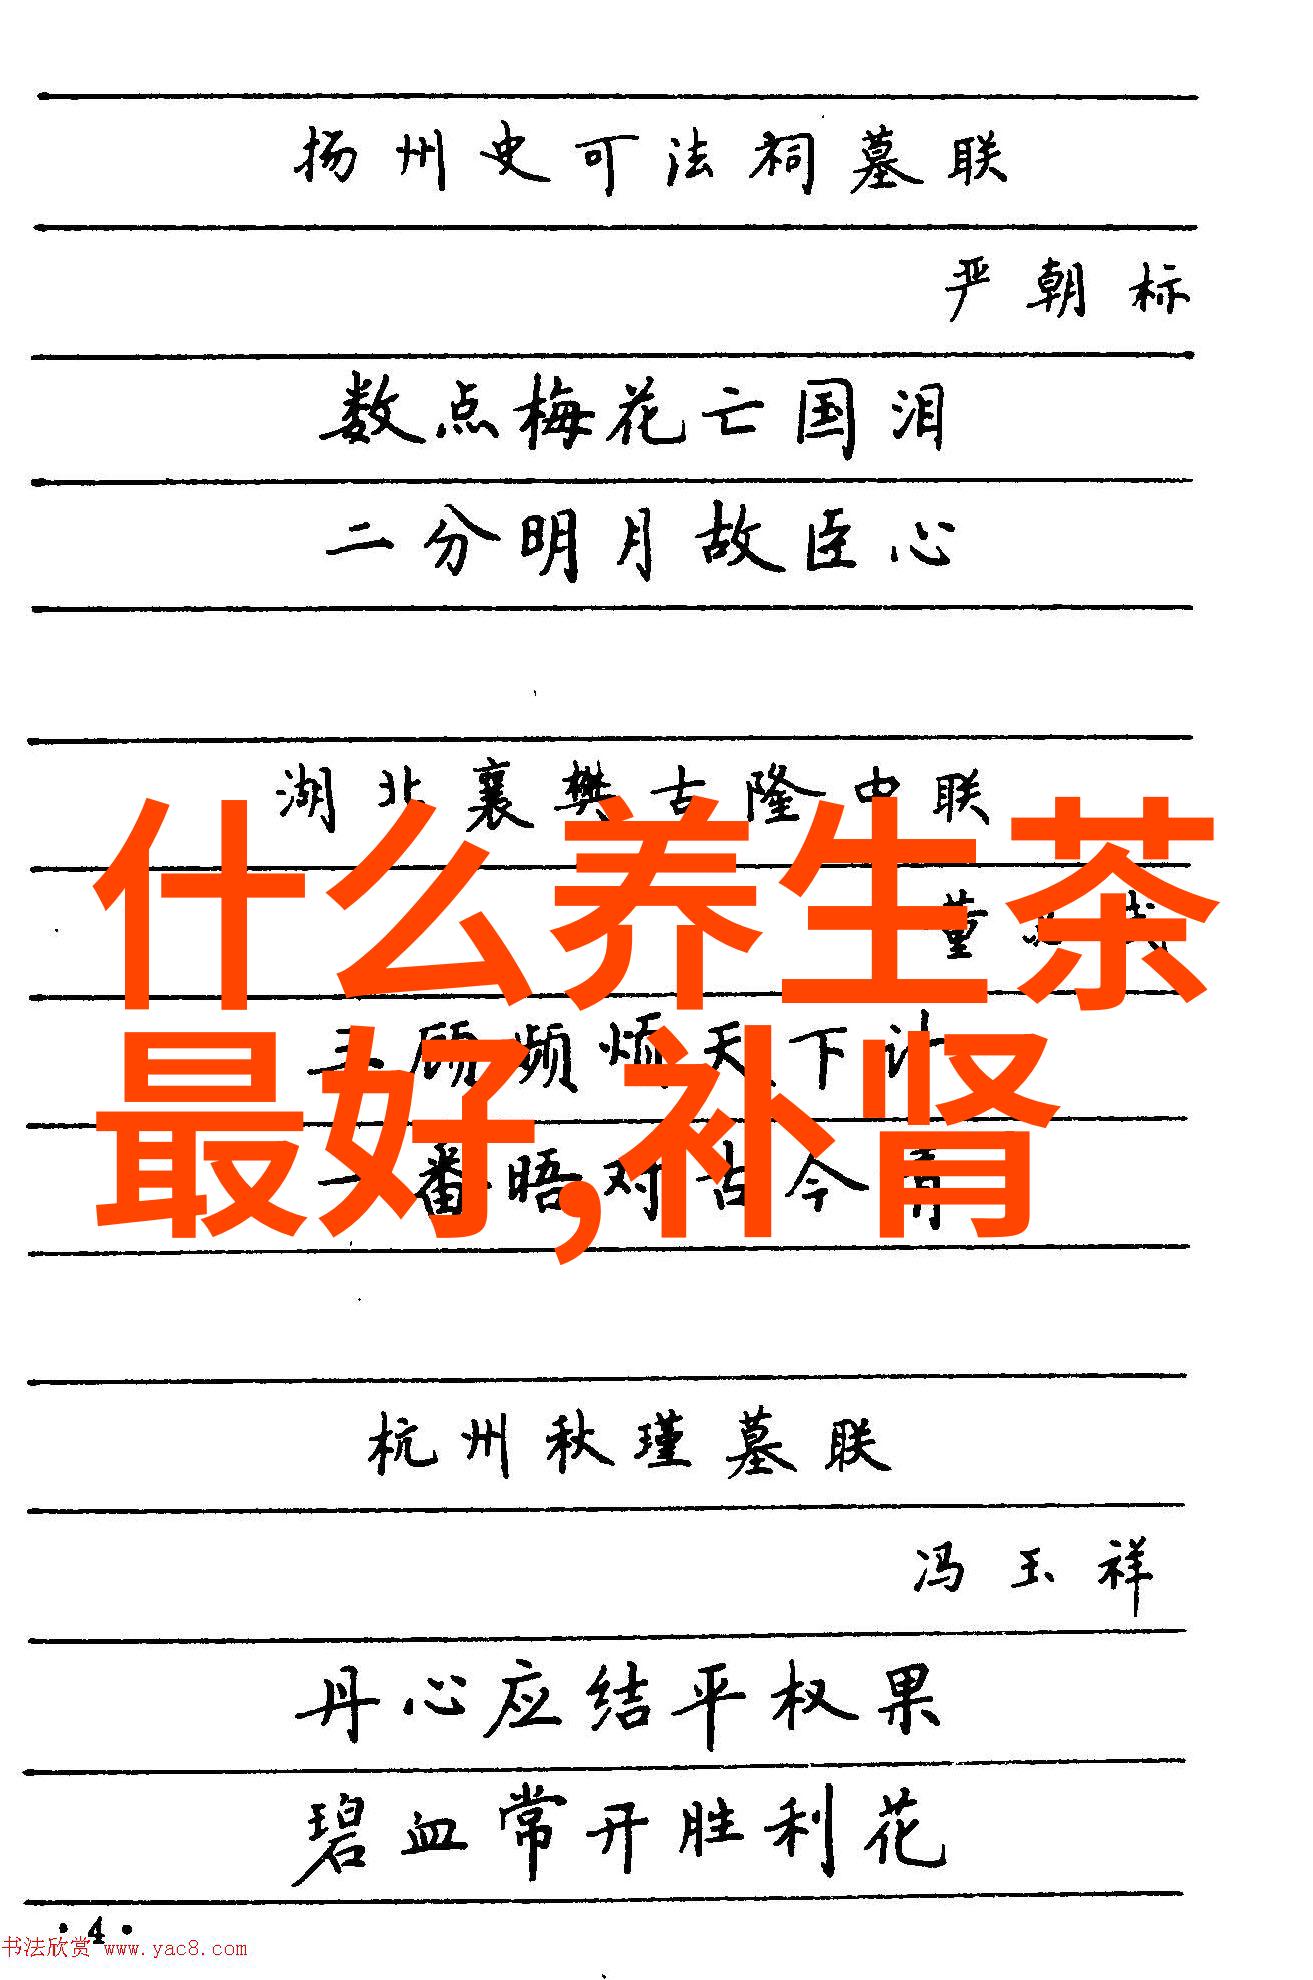 扬州史可法祠墓联
严朝标
数点梅花亡国泪
二分明月故臣心
湖北襄樊古隆中联
什么养生茶
董
三顾频烦天下计
最好,补肾
一番晤对古今情
杭州秋瑾墓联
冯玉祥
丹心应结平权果
碧血常开胜利花
·4·
书法欣赏 www.yac8.com